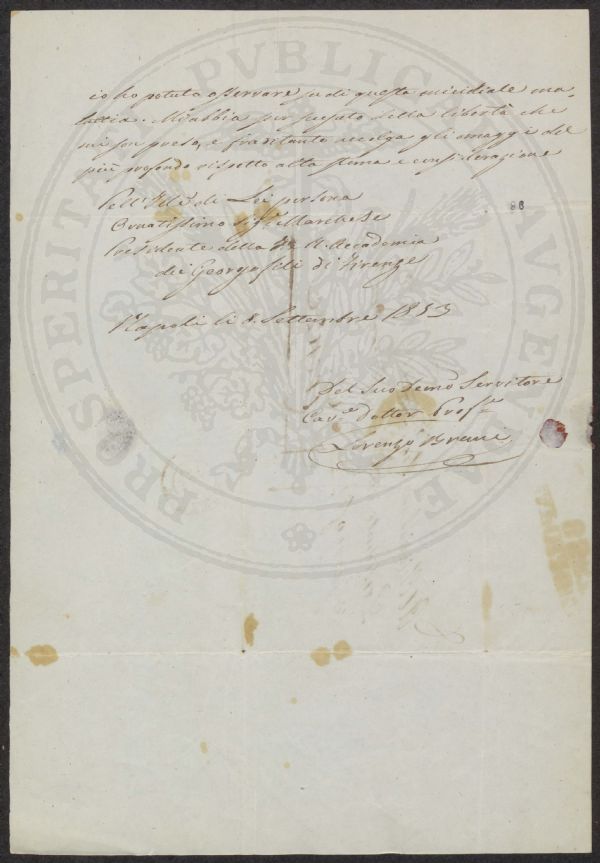 io ho potuto osservare su di questa micidiale ma-
lattia. Mi abbia per scusato della libertà che
mi son preso, e frattanto accolga gli omaggi del
più profondo rispetto alta stima e considerazione
Dell' di Lei persona
Ornatissimo Sigr. Marchese
Presidente della I. e R. Accademia
dei Georgofili di Firenze
86
Napoli li 8. Settembre 1853
Del Suo Demo Servitore
Cave. Dottor Profre.
Lorenzo
PROSPERITATI PVBLICAE AVGENDAE